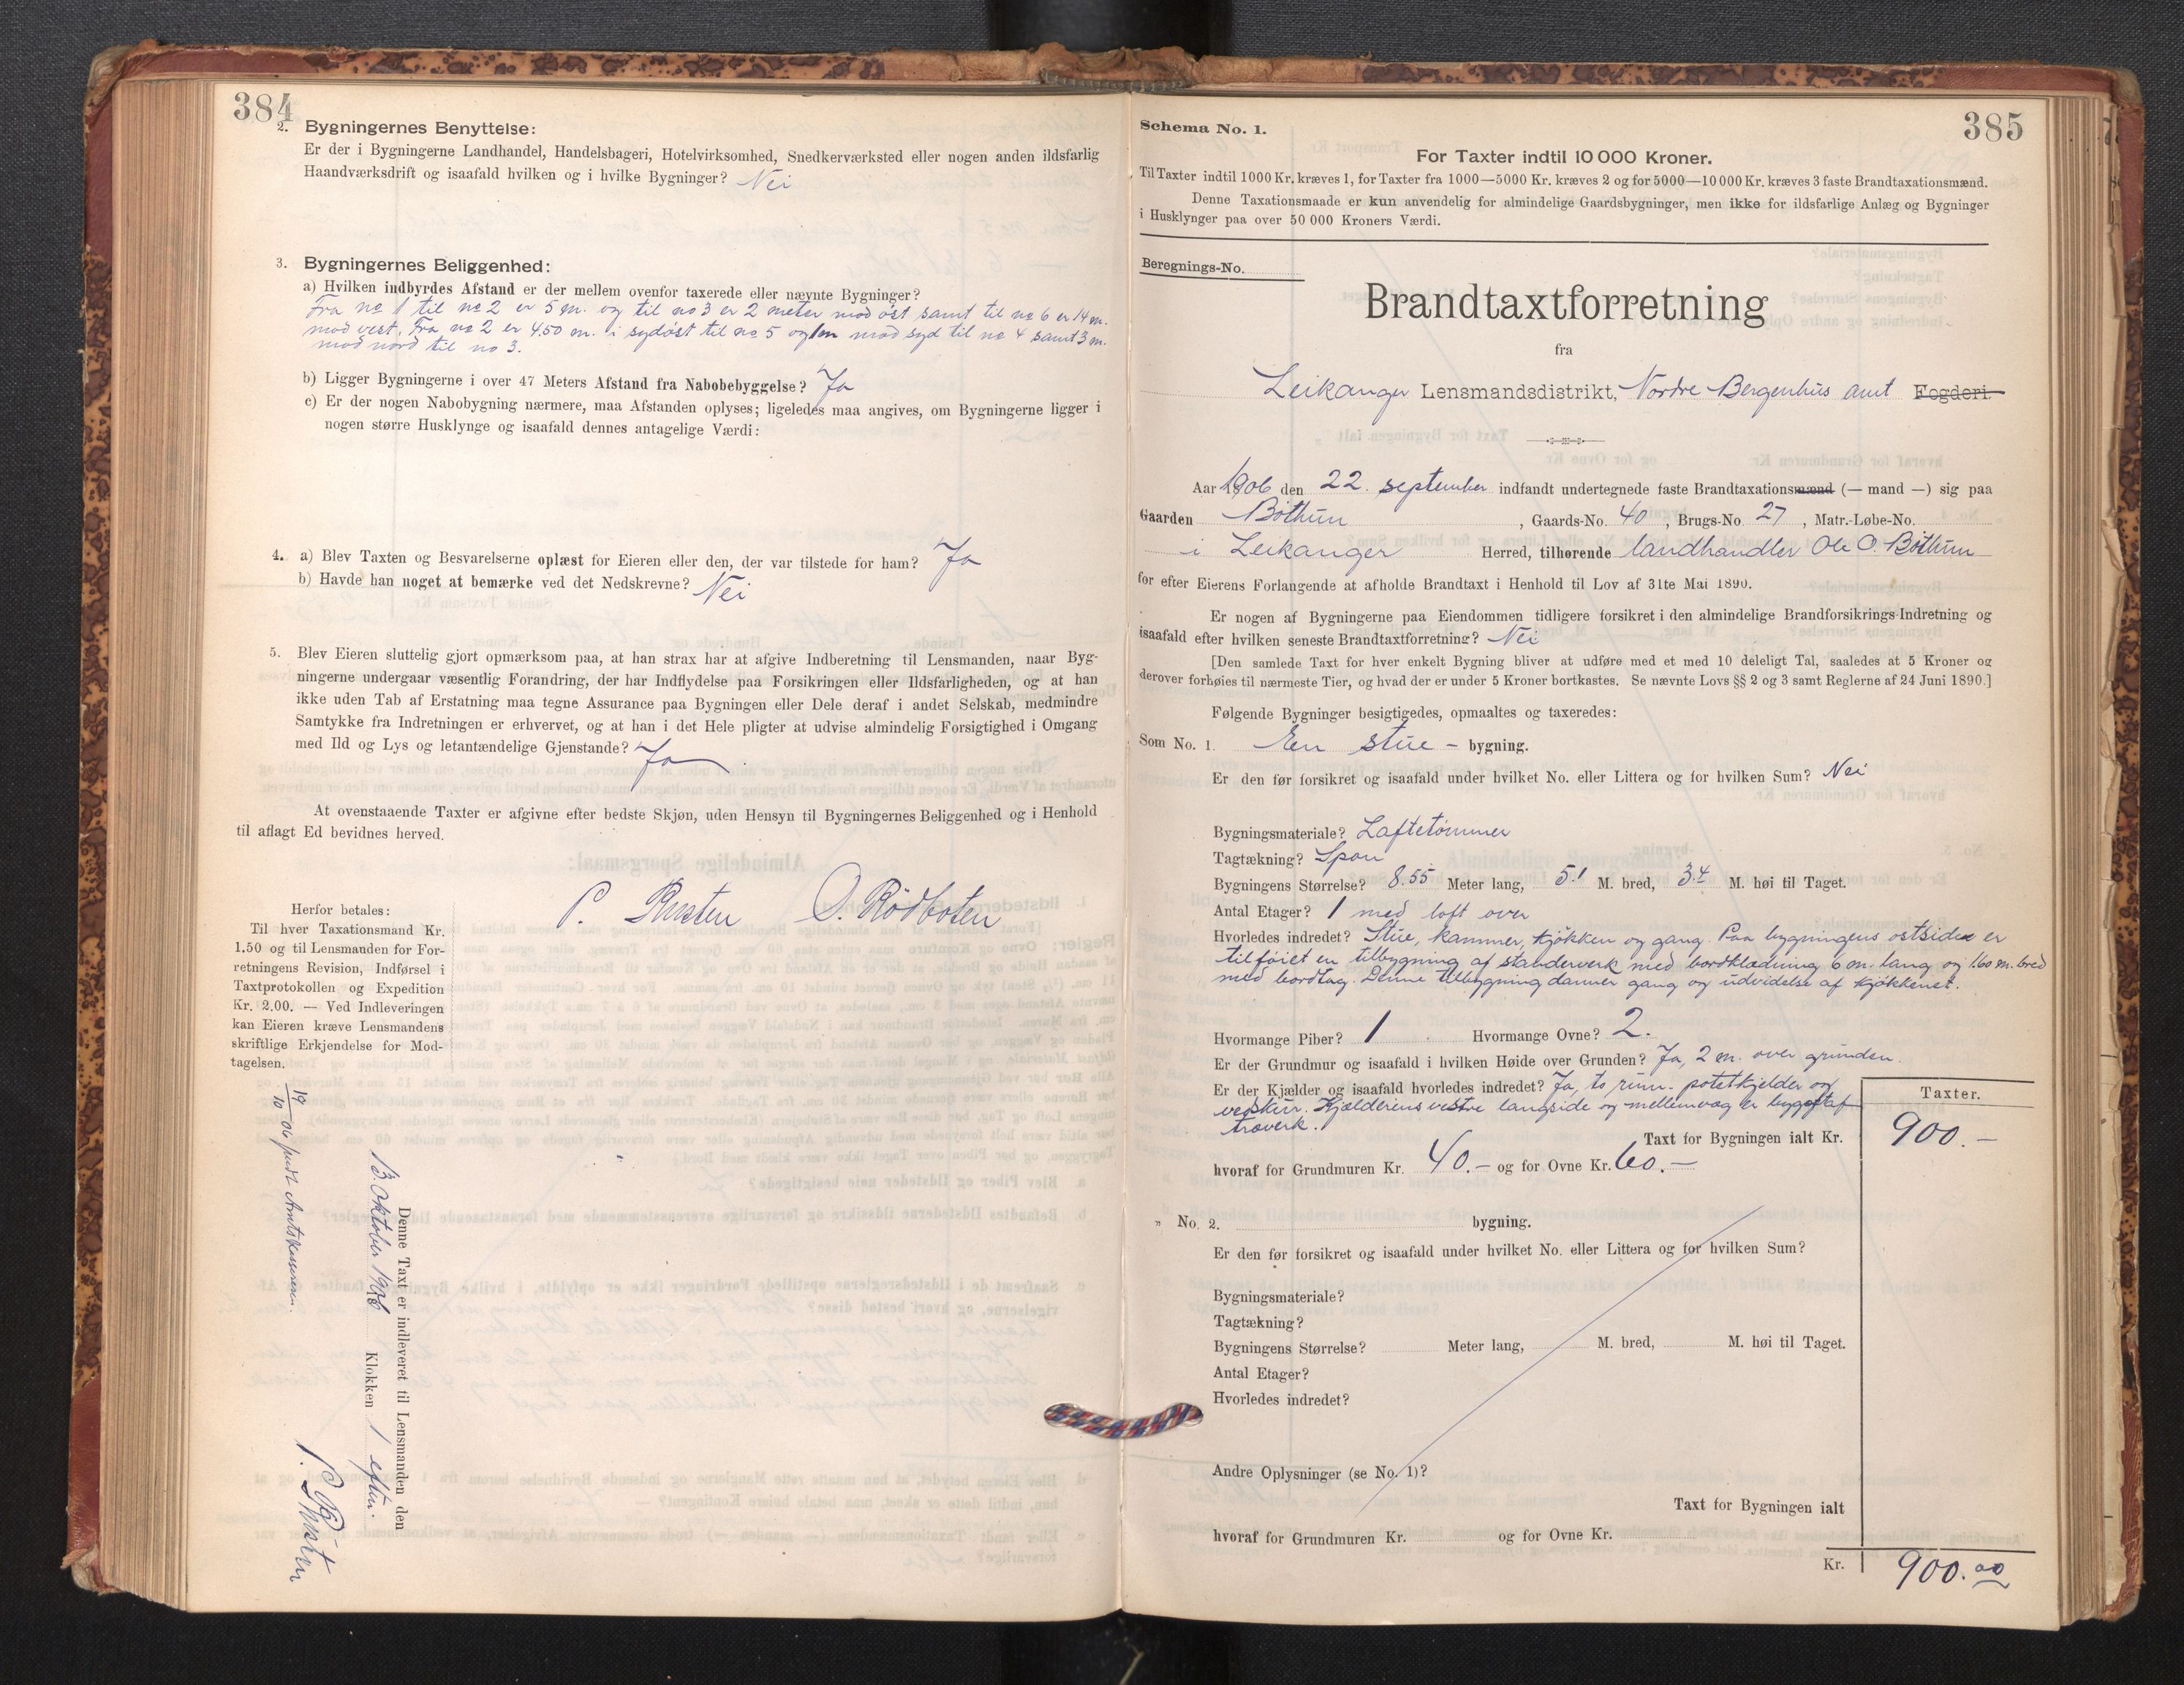 384
2. Bygningernes Benyttelse:
Er der i Bygningerne Landhandel, Handelsbageri, Hotelvirksomhed, Snedkerværksted eller nogen anden ildsfarlig
Haandværksdrift og isaafald hvilken og i hvilke Bygninger? Nei
3. Bygningernes Beliggenhed:
a) Hvilken indbyrdes Afstand er der mellem ovenfor taxerede eller nævnte Bygninger?
Fra no 1 til no 2 er 5 m. og til no 3 er 2 meter mod øst samt til no 6 er 14 m.
mod vest. Fra no 2 er 4.50 m. i sydøst til no 5 og 1 m mod syd til no 4 samt 3 m.
mod nord til no 3.
b) Ligger Bygningerne i over 47 Meters Afstand fra Nabobebyggelse? Ja
c) Er der nogen Nabobygning nærmere, maa Afstanden oplyses; ligeledes maa angives, om Bygningerne ligger i
nogen større Husklynge og isaafald dennes antagelige Værdi:
4. a) Blev Taxten og Besvarelserne oplæst for Eieren eller den, der var tilstede for ham? Ja
b) Havde han noget at bemærke ved det Nedskrevne? Nei
5. Blev Eieren sluttelig gjort opmærksom paa, at han strax har at afgive Indberetning til Lensmanden, naar Byg-
ningerne undergaar væsentlig Forandring, der har Indflydelse paa Forsikringen eller Ildsfarligheden, og at han
ikke uden Tab af Erstatning maa tegne Assurance paa Bygningen eller Dele deraf i andet Selskab, medmindre
Samtykke fra Indretningen er erhvervet, og at han i det Hele pligter at udvise almindelig Forsigtighed i Omgang
med Ild og Lys og letantændelige Gjenstande? Ja
At ovenstaaende Taxter er afgivne efter bedste Skjøn, uden Hensyn til Bygningernes Beliggenhed og i Henhold
til aflagt Ed bevidnes herved.
P. O. Rödboten
Herfor betales:
Til hver Taxationsmand Kr.
1.50 og til Lensmanden for For-
retningens Revision, Indførsel i
Taxtprotokollen og Expedition
Kr. 2.00. — Ved Indleveringen
kan Eieren kræve Lensmandens
skriftlige Erkjendelse for Mod-
tagelsen.
Denne Taxt er indleveret til Lensmanden den
13. Oktober 1906 Klokken 1 efter.
P.
19/10 06 Amtskassereren.
385
Schema No. 1.
For Taxter indtil 10 000 Kroner.
Til Taxter indtil 1000 Kr. kræves 1, for Taxter fra 1000—5000 Kr. kræves 2 og for 5000—10 000 Kr. kræves 3 faste Brandtaxationsmænd.
Denne Taxationsmaade er kun anvendelig for almindelige Gaardsbygninger, men ikke for ildsfarlige Anlæg og Bygninger
i Husklynger paa over 50 000 Kroners Værdi.
Beregnings-No.
Brandtaxtforretning
fra
Leikanger Lensmandsdistrikt, Nordre Bergenhus amt Fogderi
Aar 1906 den 22. september indfandt undertegnede faste Brandtaxationsmænd (— mand —) sig paa
Gaarden Böthun, Gaards-No. 40, Brugs-No. 27, Matr.-Løbe-No.
i Leikanger Herred, tilhørende landhandler Ole O. Böthun
for efter Eierens Forlangende at afholde Brandtaxt i Henhold til Lov af 31te Mai 1890.
Er nogen af Bygningerne paa Eiendommen tidligere forsikret i den almindelige Brandforsikrings-Indretning og
isaafald efter hvilken seneste Brandtaxtforretning? Nei
[Den samlede Taxt for hver enkelt Bygning bliver at udføre med et med 10 deleligt Tal, saaledes at 5 Kroner og
derover forhøies til nærmeste Tier, og hvad der er under 5 Kroner bortkastes. Se nævnte Lovs §§ 2 og 3 samt Reglerne af 24 Juni 1890.]
Følgende Bygninger besigtigedes, opmaaltes og taxeredes:
Som No. 1. En stue - bygning.
Er den før forsikret og isaafald under hvilket No. eller Littera og for hvilken Sum? Nei
Bygningsmateriale? Laftetömmer
Tagtækning? Spon
Bygningens Størrelse? 8.55 Meter lang, 5.1 M. bred, 3.4 M. høi til Taget.
Antal Etager? 1 med loft over
Hvorledes indredet? Stue, kammer, kjökken og gang. Paa bygningens østside er
tilföiet en tilbygning af standerverk med bordklædning 6 m. lang og 1.60 m. bred
med bordtag. Denne tilbygning danner gang og udvidelse af kjökkenet.
Hvormange Piber? 1 Hvormange Ovne? 2.
Er der Grundmur og isaafald i hvilken Høide over Grunden? Ja, 2 m. over grunden.
Er der Kjælder og isaafald hvorledes indredet? Ja, to rum. potetkjelder og
vedskur. Kjælderens vestre langside og mellemvæg er bygget af
træverk.
Taxter.
Taxt for Bygningen ialt Kr. 900.—
hvoraf for Grundmuren Kr. 40.— og for Ovne Kr. 60.—
" No. 2. bygning.
Er den før forsikret og isaafald under hvilket No. eller Littera og for hvilken Sum?
Bygningsmateriale?
Tagtækning?
Bygningens Størrelse? Meter lang, M. bred, M. høi til Taget.
Antal Etager?
Hvorledes indredet?
Andre Oplysninger (se No. 1)?
Taxt for Bygningen ialt
hvoraf for Grundmuren Kr. og for Ovne Kr.
Kr. 900.00